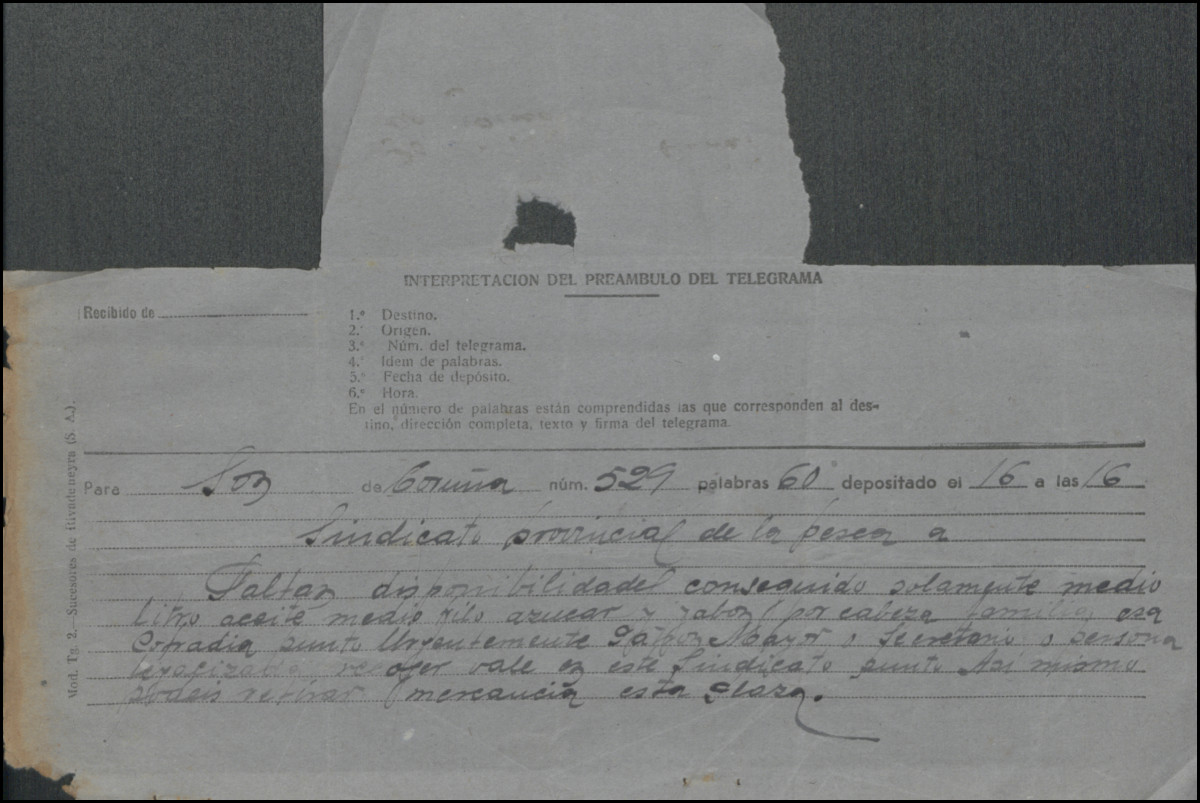 INTERPRETACION DEL PREAMBULO DEL TELEGRAMA
Recibido de
1.º Destino.
2.º Origen.
3.º Núm. del telegrama.
4.º Idem de palabras.
5.º Fecha de depósito.
6.º Hora.
En el número de palabras están comprendidas las que corresponden al des-
tino, dirección completa, texto y firma del telegrama.
Para Son de Coruña núm. 529 palabras 60 depositado el 16 a las 16
Sindicato provincial de la pesca a
Faltan disponibilidades conseguido solamente medio
litro aceite medio kilo azucar y jabon por cabeza familia esa
Cofradia punto Urgentemente Patron Mayor o Secretario o persona
recoger vale en este Sindicato punto Asi mismo
podeis retirar mercancia esta plaza.
Mod. Tg. 2.—Sucesores de Rivadeneyra (S. A.).